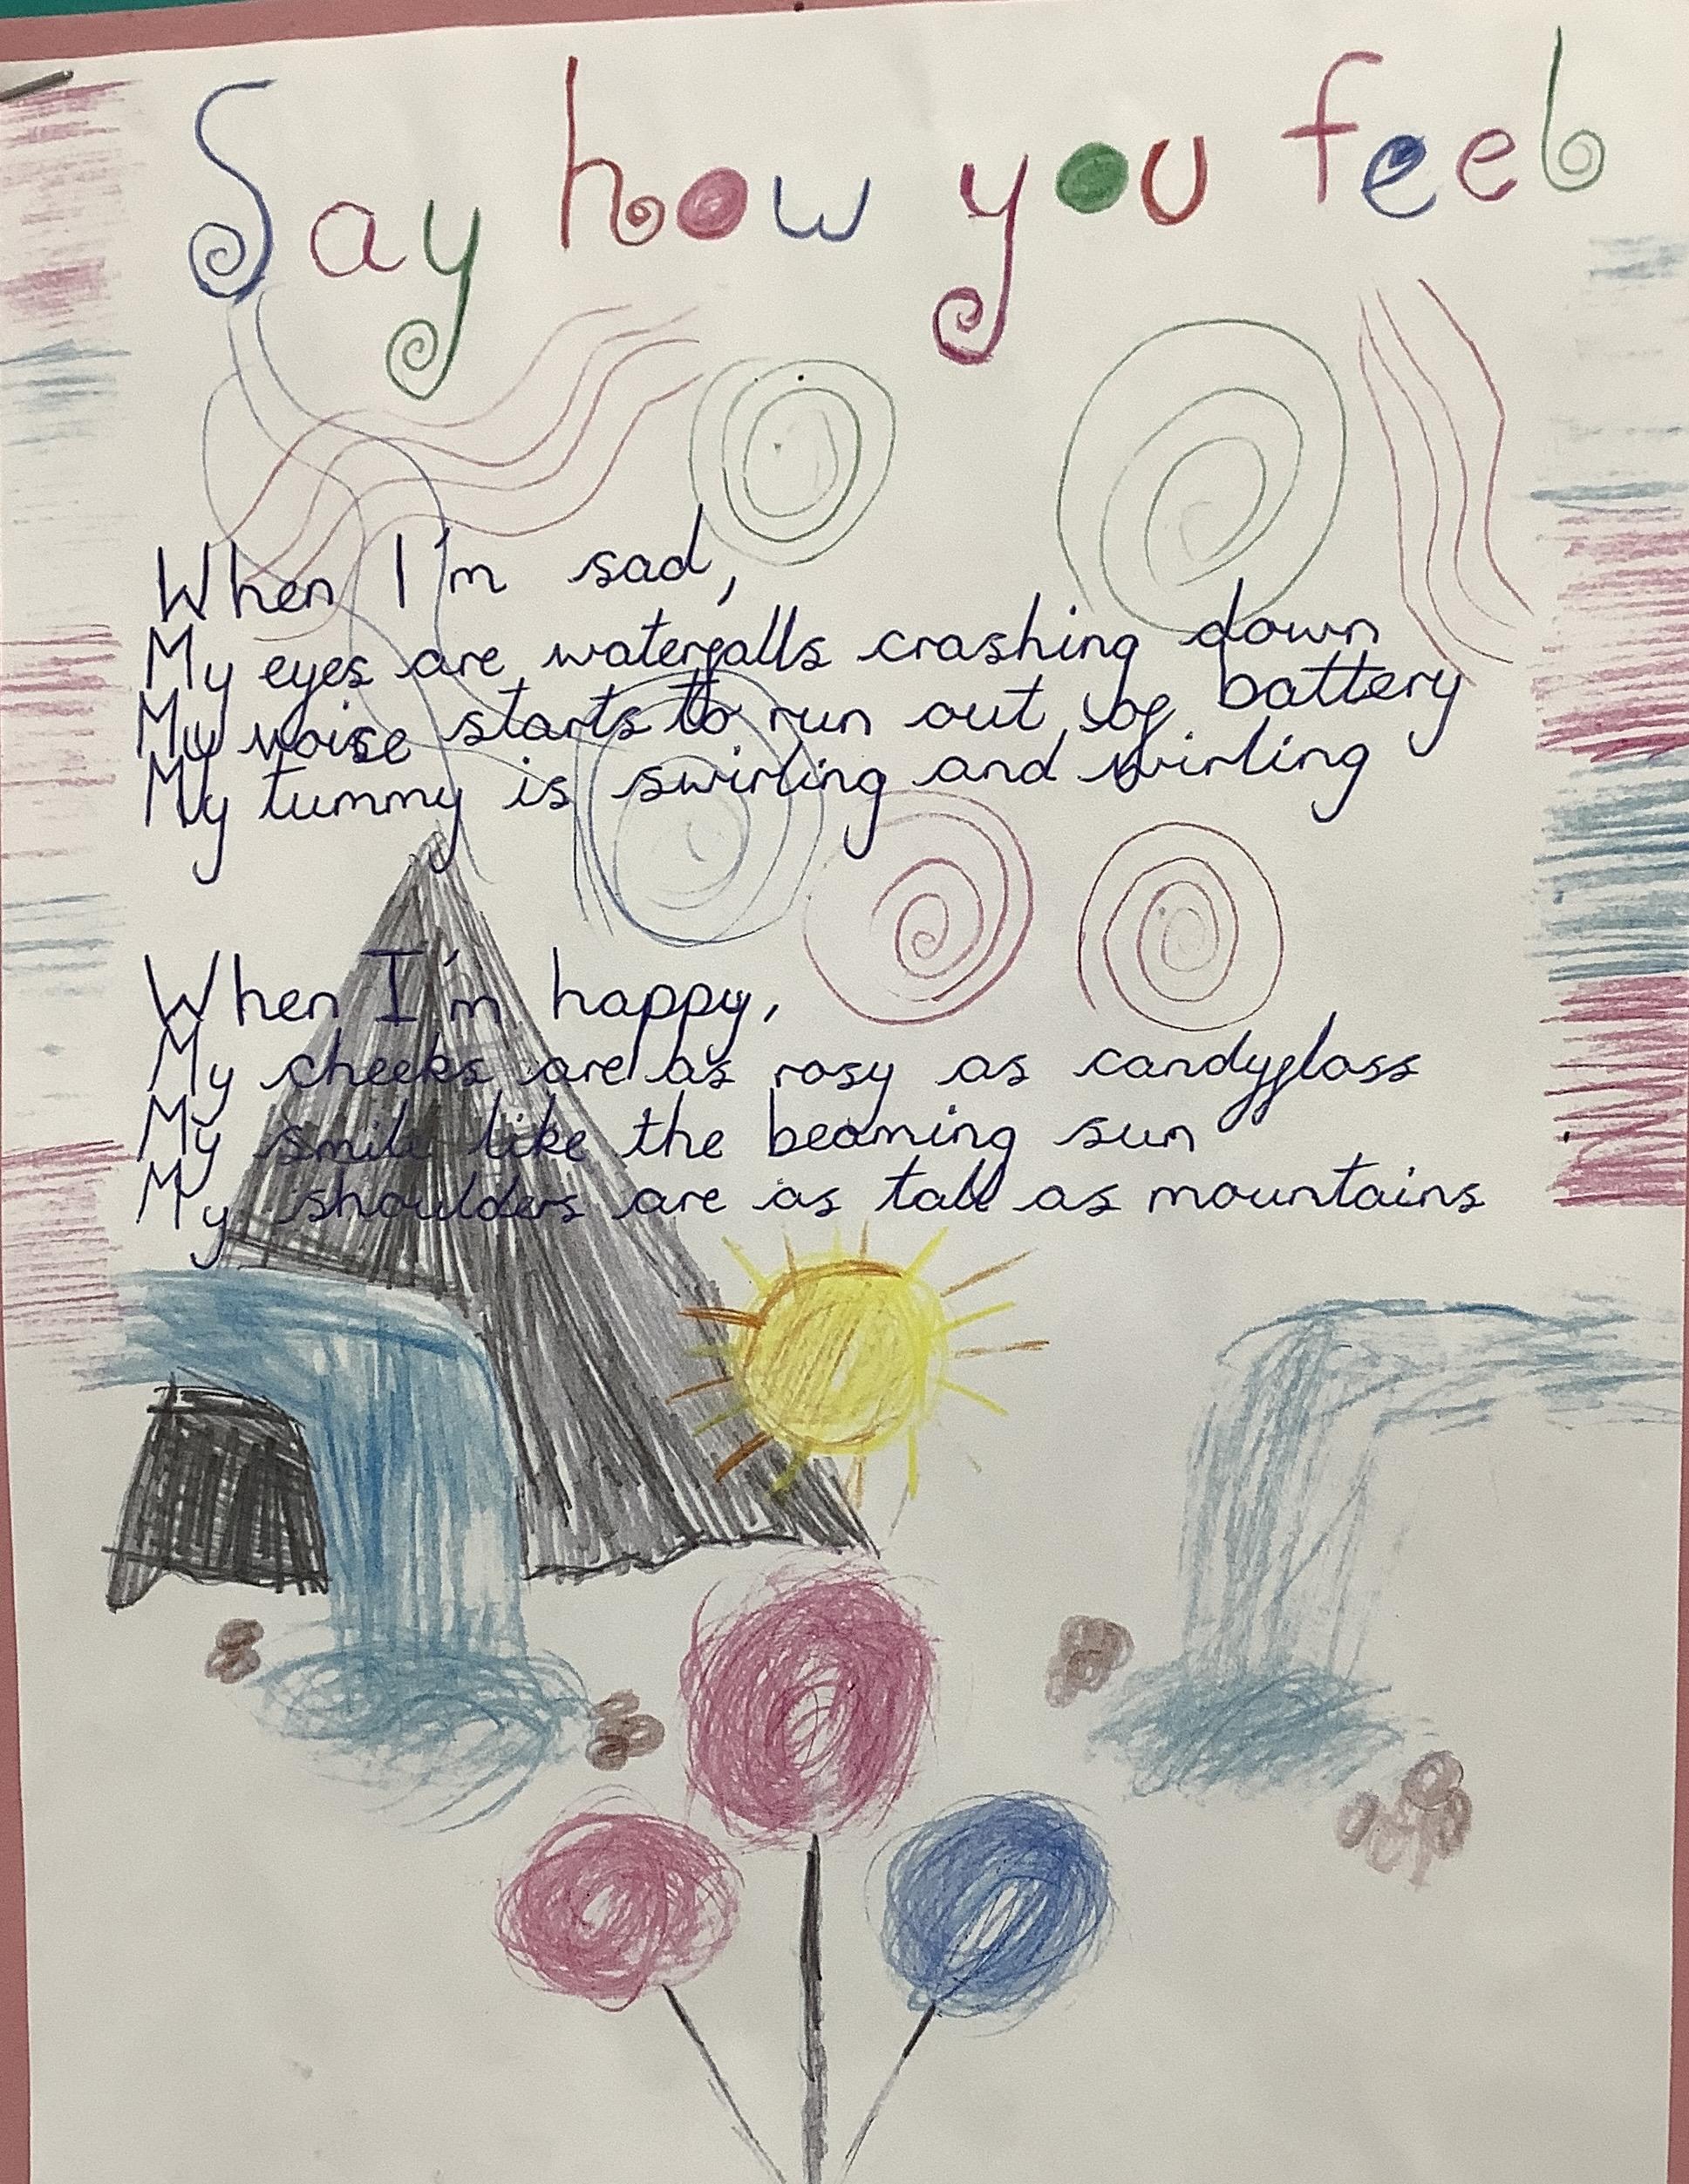 Say how you feel
When I'm sad,
My eyes are waterfalls crashing down
My voice starts to run out of battery
My tummy is swirling and wirling
When I'm happy,
My cheeks are as rosy as candyfloss
My smile like the beaming sun
My shoulders are as tall as mountains